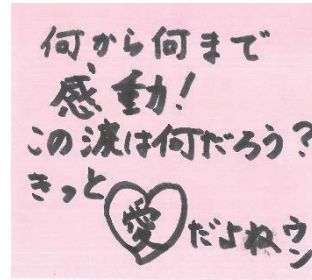 何から何まで
感動!
この涙は何だろう?
きっと
愛だよねウン